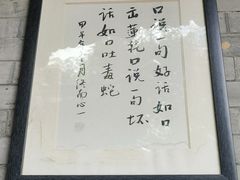 口说一句好话如口
出莲花口说一句坏
话如口吐毒蛇
甲午九月济南心一